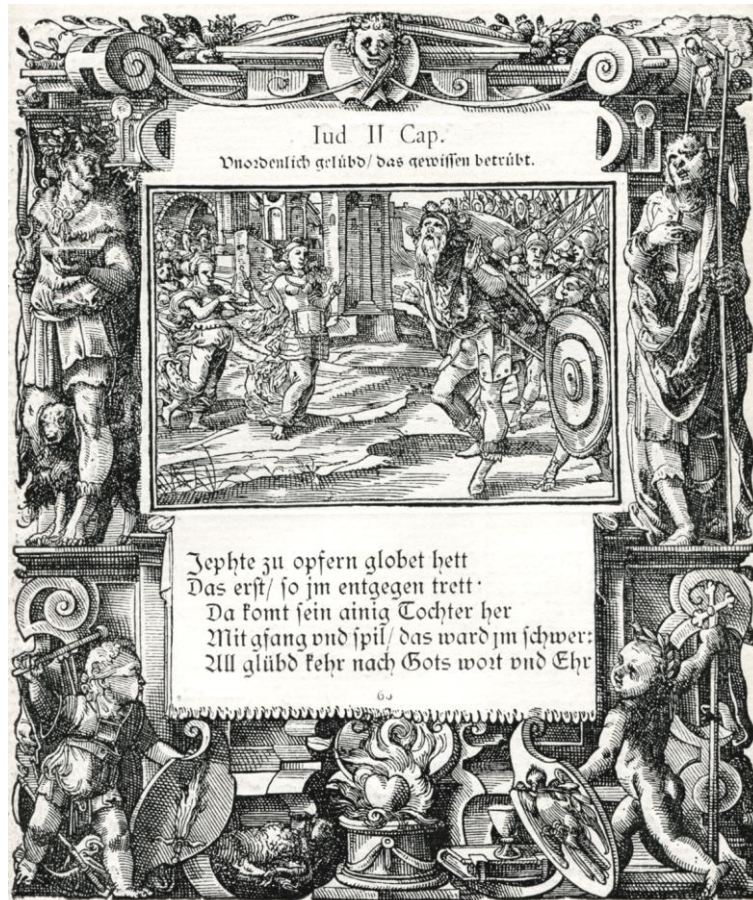 Iud II Cap.
Vnordenlich gelübd/ das gewissen betrübt.
Jephte zu opfern globet hett
Das erst/ so jm entgegen trett·
Da komt sein ainig Tochter her
Mit gsang vnd spil/ das ward jm schwer:
All glübd kehr nach Gots wort vnd Ehr